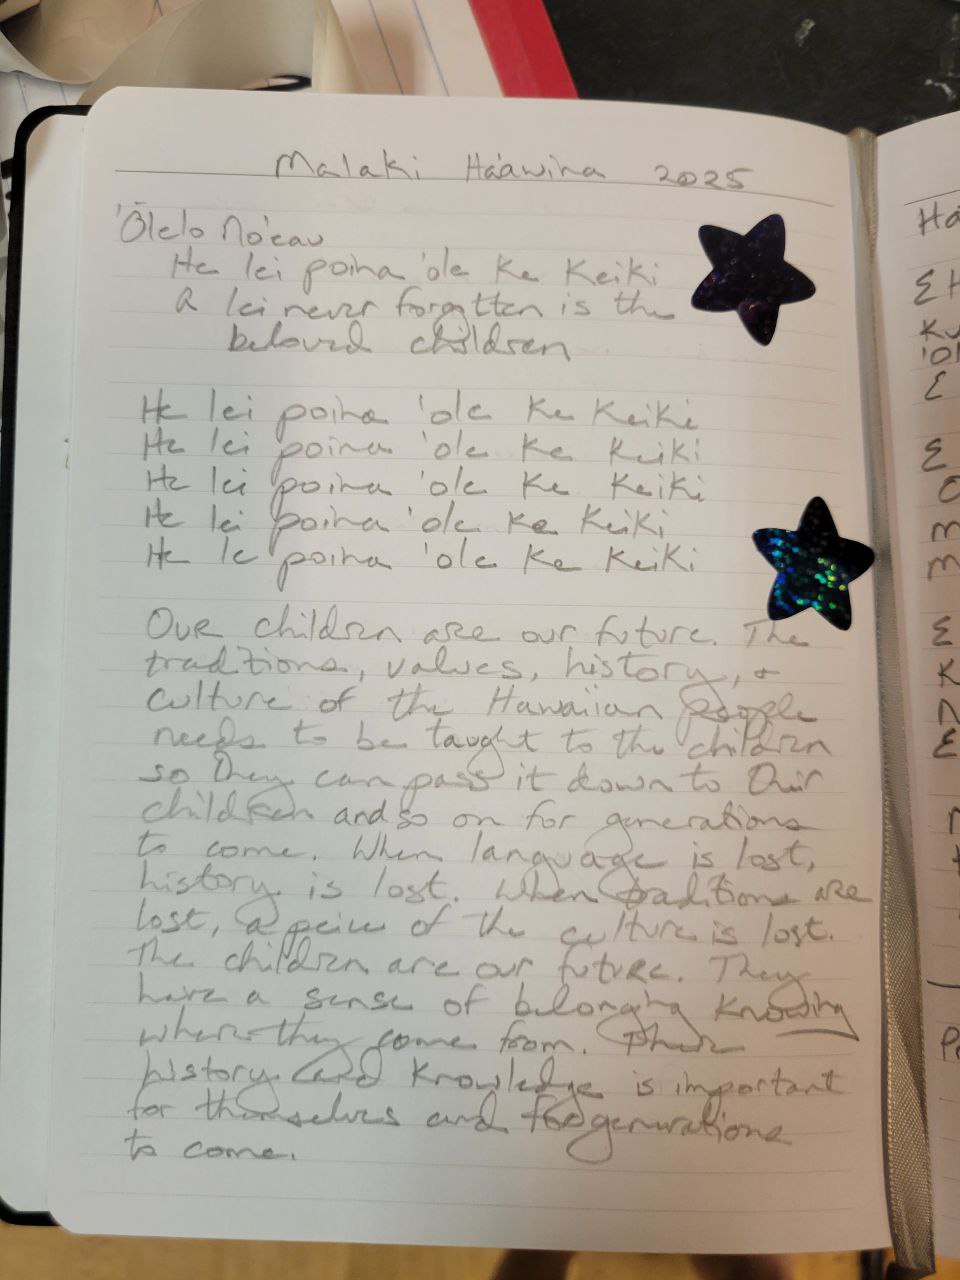 Malaki Ha'awina 2025
'Ōlelo No'eau
He lei poina 'ole ke keiki
A lei never forgotten is the
beloved children
He lei poina 'ole ke keiki
He lei poina 'ole ke keiki
He lei poina 'ole ke keiki
He lei poina 'ole ke keiki
He le poina 'ole ke keiki
Our children are our future. The
traditions, values, history, +
culture of the Hawaiian people
needs to be taught to the children
so they can pass it down to their
children and so on for generations
to come. When language is lost,
history is lost. When traditions are
lost, a peice of the culture is lost.
The children are our future. They
have a sense of belonging knowing
where they come from. Their
history and knowledge is important
for themselves and for generations
to come.
Ha
E H
Ku
'Ol
E
E
O
m
m
E
K
n
E